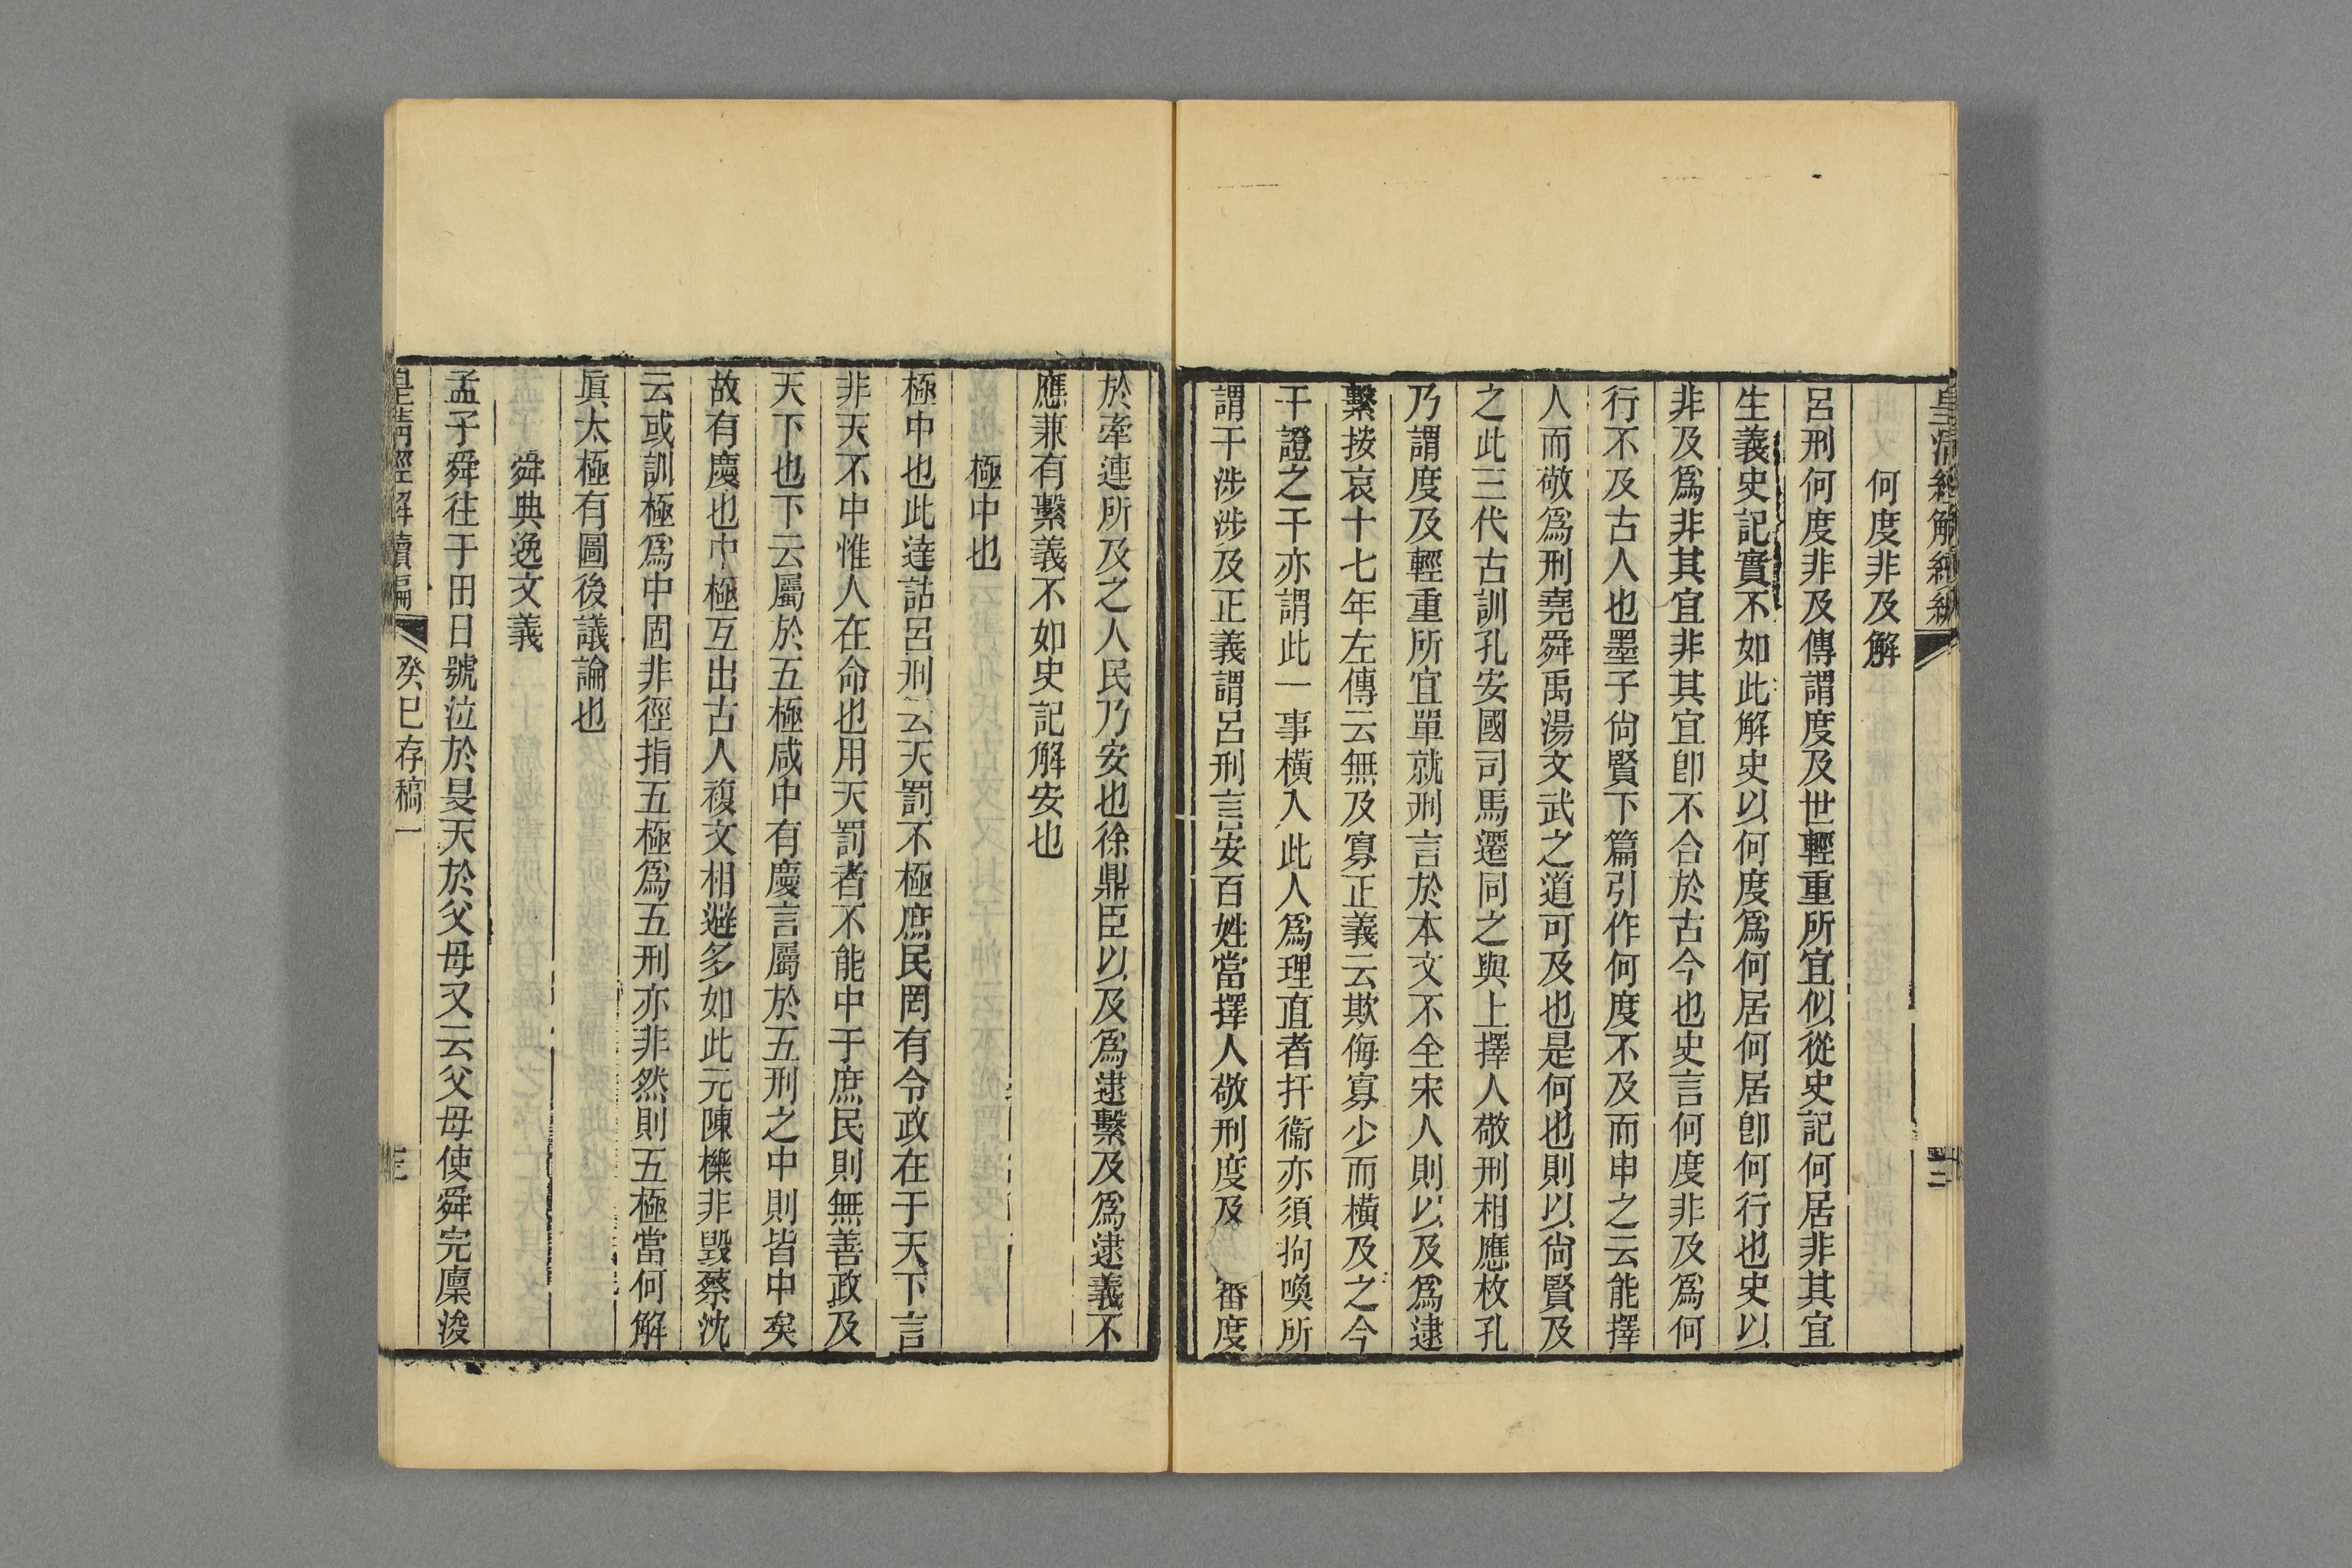 皇淸經解續編
二
何度非及解
呂刑何度非及傳謂度及世輕重所宜似從史記何居非其宜
生義史記實不如此解史以何度爲何居何居卽何行也史以
非及爲非其宜非其宜卽不合於古今也史言何度非及爲何
行不及古人也墨子尙賢下篇引作何度不及而申之云能擇
人而敬爲刑堯舜禹湯文武之道可及也是何也則以尙賢及
之此三代古訓孔安國司馬遷同之與上擇人敬刑相應枚孔
乃謂度及輕重所宜單就刑言於本文不全宋人則以及爲逮
繫按哀十七年左傳云無及寡正義云欺侮寡少而橫及之今
干證之干亦謂此一事橫入此人爲理直者扞衞亦須拘喚所
謂干涉涉及正義謂呂刑言安百姓當擇人敬刑度及 審度
於牽連所及之人民乃安也徐鼎臣以及爲逮繫及爲逮義不
應兼有繫義不如史記解安也
極中也
極中也此達詁呂刑云天罰不極庶民罔有令政在于天下言
非天不中惟人在命也用天罰者不能中于庶民則無善政及
天下也下云屬於五極咸中有慶言屬於五刑之中則皆中矣
故有慶也中極互出古人複文相避多如此元陳櫟非毀蔡沈
云或訓極爲中固非徑指五極爲五刑亦非然則五極當何解
眞太極有圖後議論也
舜典逸文義
孟子舜往于田日號泣於旻天於父母又云父母使舜完廩浚
皇淸經解續編
癸巳存稿一
三